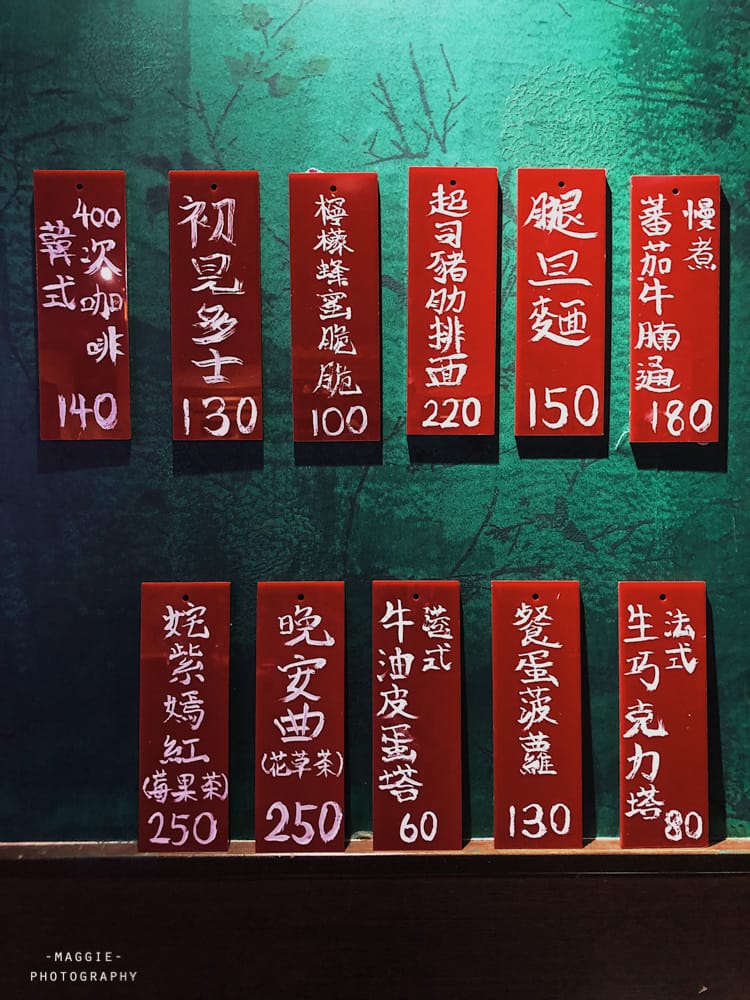 韓式
400次咖啡
140
初見多士
130
檸檬蜂蜜脆脆
100
起司豬肋排面
220
腿旦麵
150
慢煮
蕃茄牛腩通
180
姹紫嫣紅
(莓果茶)
250
晚安曲
(花草茶)
250
港式
牛油皮蛋塔
60
餐蛋菠蘿
130
法式
生巧克力塔
80
-MAGGIE-
PHOTOGRAPHY